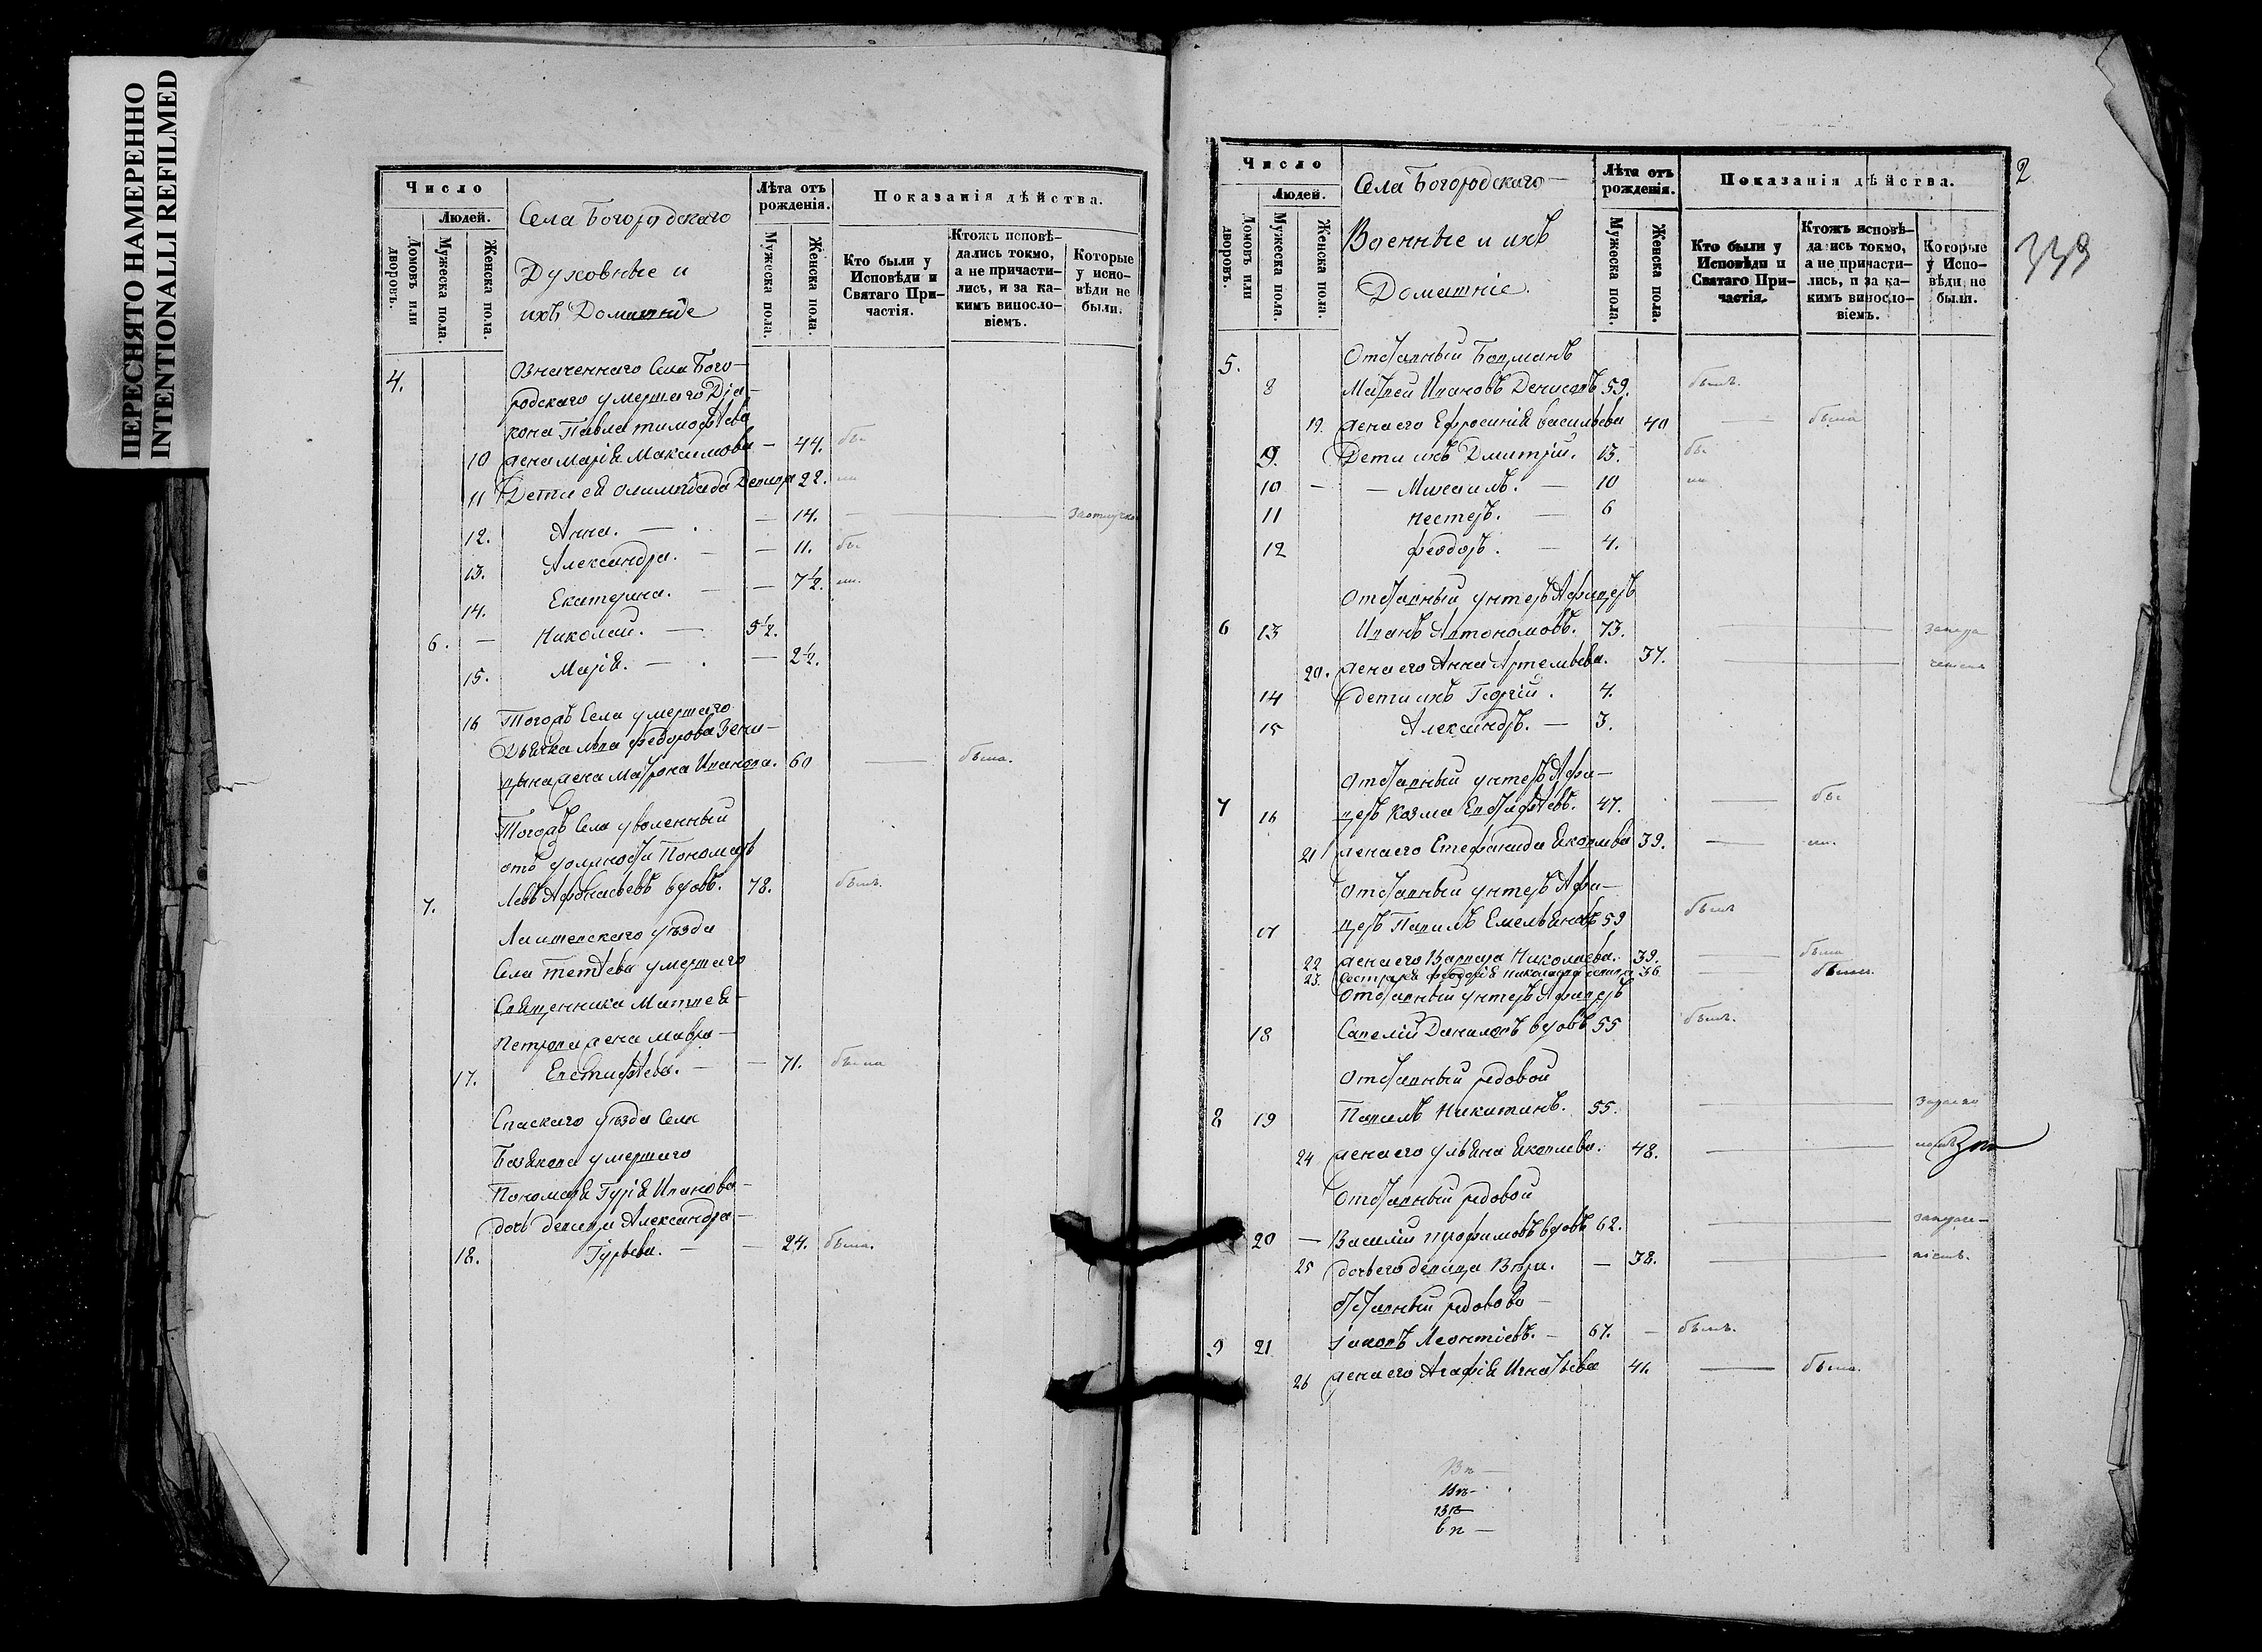 ПЕРЕСНЯТО НАМЕРЕННО
INTENTIONALLI REFILMED
Число
Людей.
Домовъ или дворовъ.
Мужеска пола.
Женска пола.
Села Богородскаго
Духовные и
ихъ Домашніе
Лѣта отъ рожденія.
Мужеска пола.
Женска пола.
Показанія дѣйства.
Кто были у Исповѣди и Святаго Причастія.
Ктожъ исповѣдались токмо, а не причастились, и за какимъ винословіемъ.
Которые у исповѣди не были.
4.
Означеннаго Села Бого-
родскаго умершаго Діа-
кона Павла тимофѣева
10 жена Марія Максимова - 44. бы.
11 Дети ея Олимпіада Девица 22.
12. Анна. - - 14. - За отлучко
13. Александра. - - 11. бы.
14. Екатерина. - - 7½.
6. - Николай. - 5½.
15. Марія. - - 2½.
16 Тогожъ Села умершаго
Дьячка Льва Федорова Зени-
цына жена Матрона Иванова. 60 - была.
Тогожъ Села уволенный
отъ должности Пономарь
7. Левъ Афонасьевъ вдовъ. 78. былъ.
Лаишевскаго уѣзда
Села тетѣева умершаго
Священника Матвея
Петрова жена Мавра -
17. Евстифѣева. - - 71. была
Спаскаго уѣзда Села
Базякова умершаго
Пономаря Гурія Иванова -
дочь девица Александра -
18. Гурьева. - - 24. была.
2
339
Число
Людей.
Домовъ или дворовъ.
Мужеска пола.
Женска пола.
Села Богородскаго
Военные и ихъ
Домашніе.
Лѣта отъ рожденія.
Мужеска пола.
Женска пола.
Показанія дѣйства.
Кто были у Исповѣди и Святаго Причастія.
Ктожъ исповѣдались токмо, а не причастились, и за какимъ винословіемъ.
Которые у Исповѣди не были.
5. Отставный Боцманъ
8 Матвей Ивановъ Денисовъ 59. былъ.
19. жена его Ефросинія васильева 40 - была
9. Дети ихъ Дмитрій. 13. бы.
10 - - Михаилъ. - 10
11 нестеръ. - 6
12 феодоръ. - 4.
Отставный унтеръ Афицеръ
6 13 Иванъ Артономовъ. 73. -
20. жена его Анна Артемьева. 37. -
14 дети ихъ Георгій. 4.
15 Александръ. - 3.
Отставный унтеръ Афи-
7 16 церъ Козма Евстифѣевъ. 47. - бы.
21 жена его Стефанида Яковлева 39. -
Отставный унтеръ Афи-
17 церъ Павилъ Емельяновъ 59 былъ
22 жена его Варвара Николаева. 39. - была
23. Сестра ея феодосія николаева девица 36 - была.
Отставный унтеръ Афицеръ
18 Савелій Даниловъ вдовъ 55 былъ.
Отставный редовой
8 19 Павилъ Никитинъ. 55. -
24 жена его ульяна Яковлева. 48. -
Отставный редовой
20 - Василій трофимовъ вдовъ 62. -
25 дочь его девица Вѣра. - 38. -
Отставный редовова -
9 21 Іаковъ Леонтіевъ. - 67. - былъ.
26 жена его Агафія Игнатьева 41. - была.